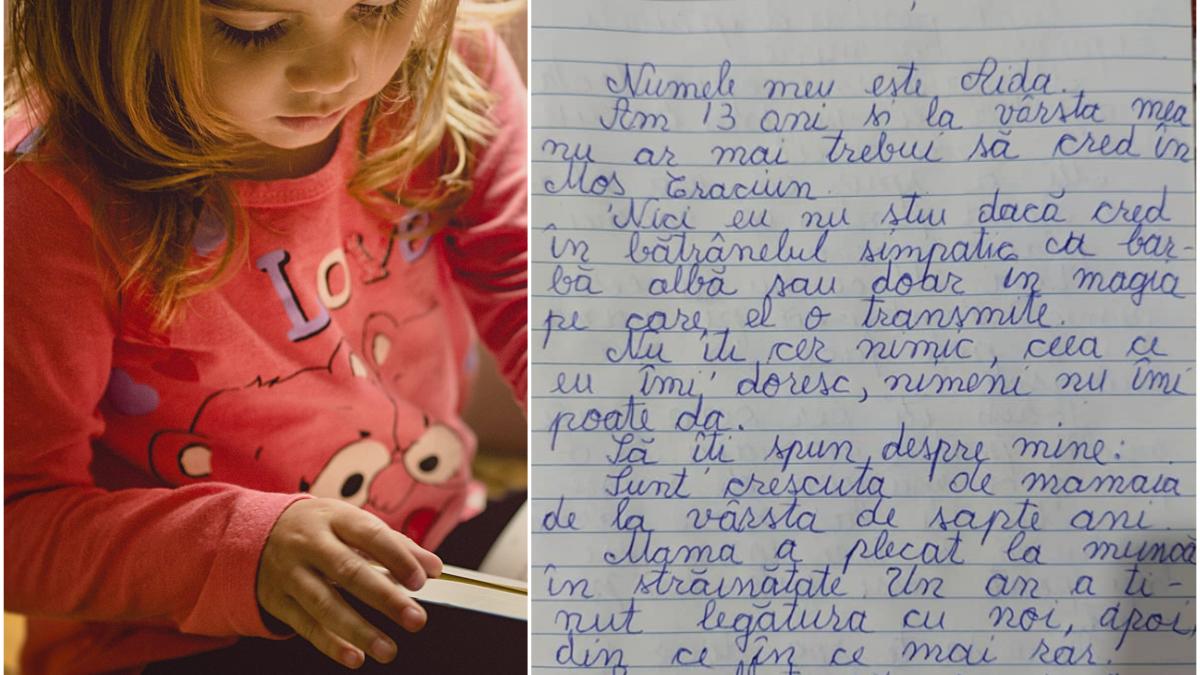 Love
Numele meu este Aida.
Am 13 ani si la vârsta mea
nu ar mai trebui să cred în
Mos Craciun.
Nici eu nu stiu dacă cred
în bătrânelul simpatic cu bar-
bă albă sau doar in magia
pe care el o transmite.
Nu iti cer nimic, ceea ce
eu îmi doresc, nimeni nu îmi
poate da.
Să îți spun despre mine:
Sunt crescuta de mamaia
de la vârsta de sapte ani.
Mama a plecat la muncă
în străinătate Un an a ti-
nut legătura cu noi, apoi,
din ce în ce mai rar.